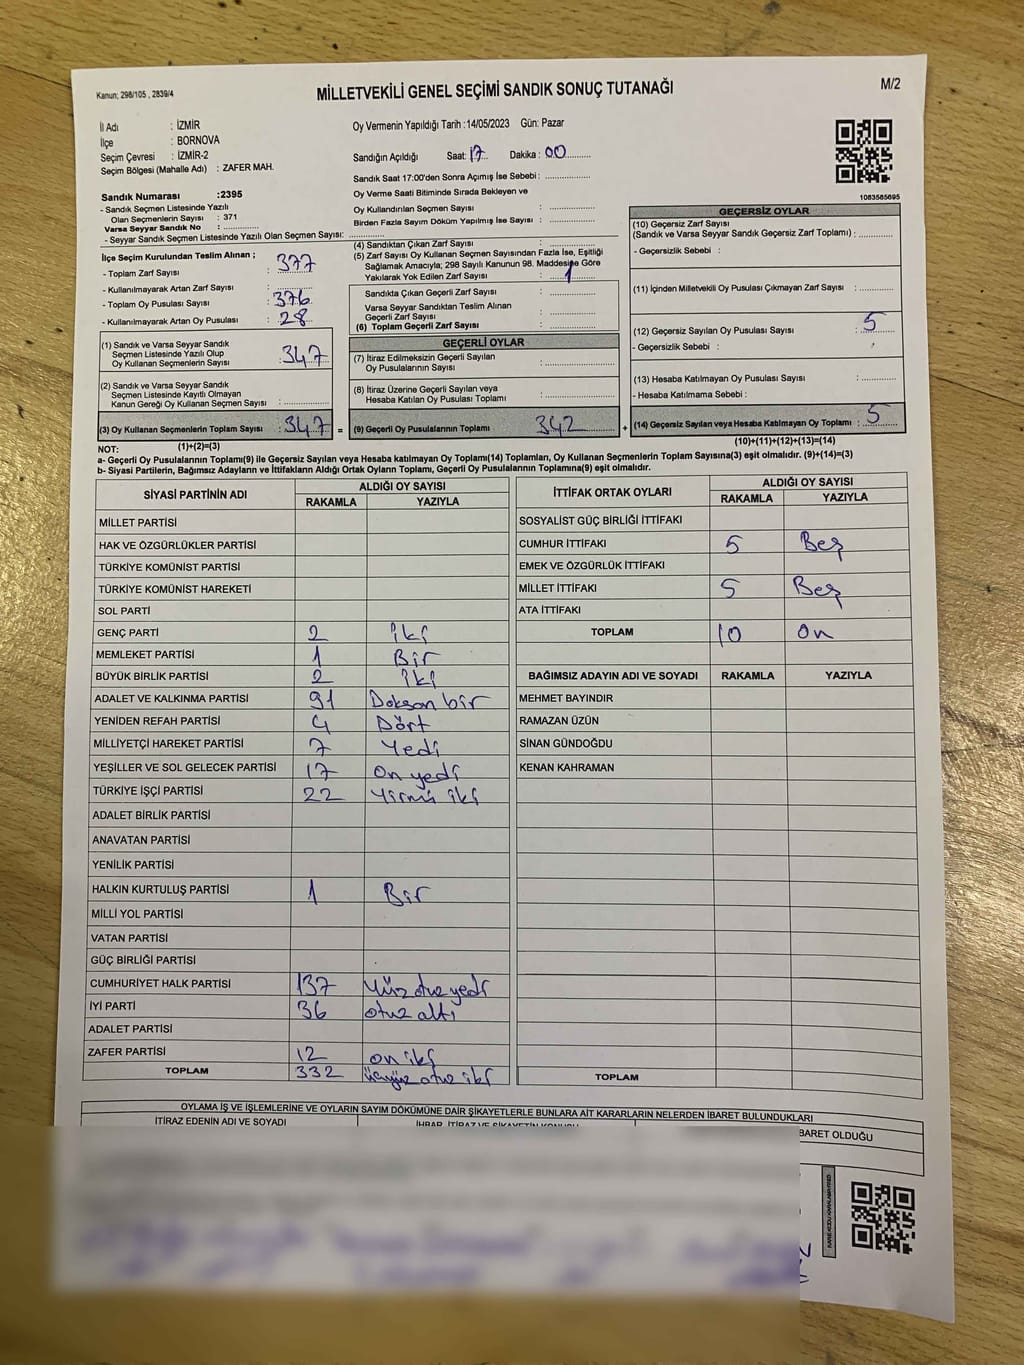 Kanun; 298/105 , 2839/4
MİLLETVEKİLİ GENEL SEÇİMİ SANDIK SONUÇ TUTANAĞI
M/2
İl Adı : İZMİR
İlçe : BORNOVA
Seçim Çevresi : İZMİR-2
Seçim Bölgesi (Mahalle Adı) : ZAFER MAH.
Oy Vermenin Yapıldığı Tarih :14/05/2023 Gün: Pazar
Sandığın Açıldığı Saat: 17 Dakika : 00
Sandık Saat 17:00'den Sonra Açımış İse Sebebi :
Oy Verme Saati Bitiminde Sırada Bekleyen ve
Oy Kullandırılan Seçmen Sayısı :
Birden Fazla Sayım Döküm Yapılmış İse Sayısı :
1083585695
Sandık Numarası :2395
- Sandık Seçmen Listesinde Yazılı
Olan Seçmenlerin Sayısı : 371
Varsa Seyyar Sandık No :
- Seyyar Sandık Seçmen Listesinde Yazılı Olan Seçmen Sayısı:
İlçe Seçim Kurulundan Teslim Alınan ;
- Toplam Zarf Sayısı : 377
- Kullanılmayarak Artan Zarf Sayısı :
- Toplam Oy Pusulası Sayısı : 376
- Kullanılmayarak Artan Oy Pusulası : 28
(1) Sandık ve Varsa Seyyar Sandık
Seçmen Listesinde Yazılı Olup
Oy Kullanan Seçmenlerin Sayısı : 347
(2) Sandık ve Varsa Seyyar Sandık
Seçmen Listesinde Kayıtlı Olmayan
Kanun Gereği Oy Kullanan Seçmen Sayısı :
(3) Oy Kullanan Seçmenlerin Toplam Sayısı : 347 =
(4) Sandıktan Çıkan Zarf Sayısı :
(5) Zarf Sayısı Oy Kullanan Seçmen Sayısından Fazla İse, Eşitliği
Sağlamak Amacıyla; 298 Sayılı Kanunun 98. Maddesine Göre
Yakılarak Yok Edilen Zarf Sayısı : 1
Sandıkta Çıkan Geçerli Zarf Sayısı :
Varsa Seyyar Sandıktan Teslim Alınan
Geçerli Zarf Sayısı :
(6) Toplam Geçerli Zarf Sayısı :
GEÇERLİ OYLAR
(7) İtiraz Edilmeksizin Geçerli Sayılan
Oy Pusulalarının Sayısı :
(8) İtiraz Üzerine Geçerli Sayılan veya
Hesaba Katılan Oy Pusulası Toplamı :
(9) Geçerli Oy Pusulalarının Toplamı : 342 +
GEÇERSİZ OYLAR
(10) Geçersiz Zarf Sayısı
(Sandık ve Varsa Seyyar Sandık Geçersiz Zarf Toplamı) :
- Geçersizlik Sebebi :
(11) İçinden Milletvekili Oy Pusulası Çıkmayan Zarf Sayısı :
(12) Geçersiz Sayılan Oy Pusulası Sayısı : 5
- Geçersizlik Sebebi :
(13) Hesaba Katılmayan Oy Pusulası Sayısı :
- Hesaba Katılmama Sebebi :
(14) Geçersiz Sayılan veya Hesaba Katılmayan Oy Toplamı : 5
NOT: (1)+(2)=(3)
(10)+(11)+(12)+(13)=(14)
a- Geçerli Oy Pusulalarının Toplamı(9) ile Geçersiz Sayılan veya Hesaba katılmayan Oy Toplamı(14) Toplamları, Oy Kullanan Seçmenlerin Toplam Sayısına(3) eşit olmalıdır. (9)+(14)=(3)
b- Siyasi Partilerin, Bağımsız Adayların ve İttifakların Aldığı Ortak Oyların Toplamı, Geçerli Oy Pusulalarının Toplamına(9) eşit olmalıdır.
SİYASİ PARTİNİN ADI ALDIĞI OY SAYISI
RAKAMLA YAZIYLA
MİLLET PARTİSİ
HAK VE ÖZGÜRLÜKLER PARTİSİ
TÜRKİYE KOMÜNİST PARTİSİ
TÜRKİYE KOMÜNİST HAREKETİ
SOL PARTİ
GENÇ PARTİ 2 iki
MEMLEKET PARTİSİ 1 Bir
BÜYÜK BİRLİK PARTİSİ 2 iki
ADALET VE KALKINMA PARTİSİ 91 Doksan bir
YENİDEN REFAH PARTİSİ 4 Dört
MİLLİYETÇİ HAREKET PARTİSİ 7 Yedi
YEŞİLLER VE SOL GELECEK PARTİSİ 17 On yedi
TÜRKİYE İŞÇİ PARTİSİ 22 Yirmi iki
ADALET BİRLİK PARTİSİ
ANAVATAN PARTİSİ
YENİLİK PARTİSİ
HALKIN KURTULUŞ PARTİSİ 1 Bir
MİLLİ YOL PARTİSİ
VATAN PARTİSİ
GÜÇ BİRLİĞİ PARTİSİ
CUMHURİYET HALK PARTİSİ 137 Yüz otuz yedi
İYİ PARTİ 36 otuz altı
ADALET PARTİSİ
ZAFER PARTİSİ 12 on iki
TOPLAM 332 üçyüz otuz iki
İTTİFAK ORTAK OYLARI ALDIĞI OY SAYISI
RAKAMLA YAZIYLA
SOSYALİST GÜÇ BİRLİĞİ İTTİFAKI
CUMHUR İTTİFAKI 5 Beş
EMEK VE ÖZGÜRLÜK İTTİFAKI
MİLLET İTTİFAKI 5 Beş
ATA İTTİFAKI
TOPLAM 10 On
BAĞIMSIZ ADAYIN ADI VE SOYADI RAKAMLA YAZIYLA
MEHMET BAYINDIR
RAMAZAN ÜZÜN
SİNAN GÜNDOĞDU
KENAN KAHRAMAN
TOPLAM
OYLAMA İŞ VE İŞLEMLERİNE VE OYLARIN SAYIM DÖKÜMÜNE DAİR ŞİKAYETLERLE BUNLARA AİT KARARLARIN NELERDEN İBARET BULUNDUKLARI
İTİRAZ EDENİN ADI VE SOYADI
İHBAR, İTİRAZ VE ŞİKAYETİN KONUSU
BARET OLDUĞU